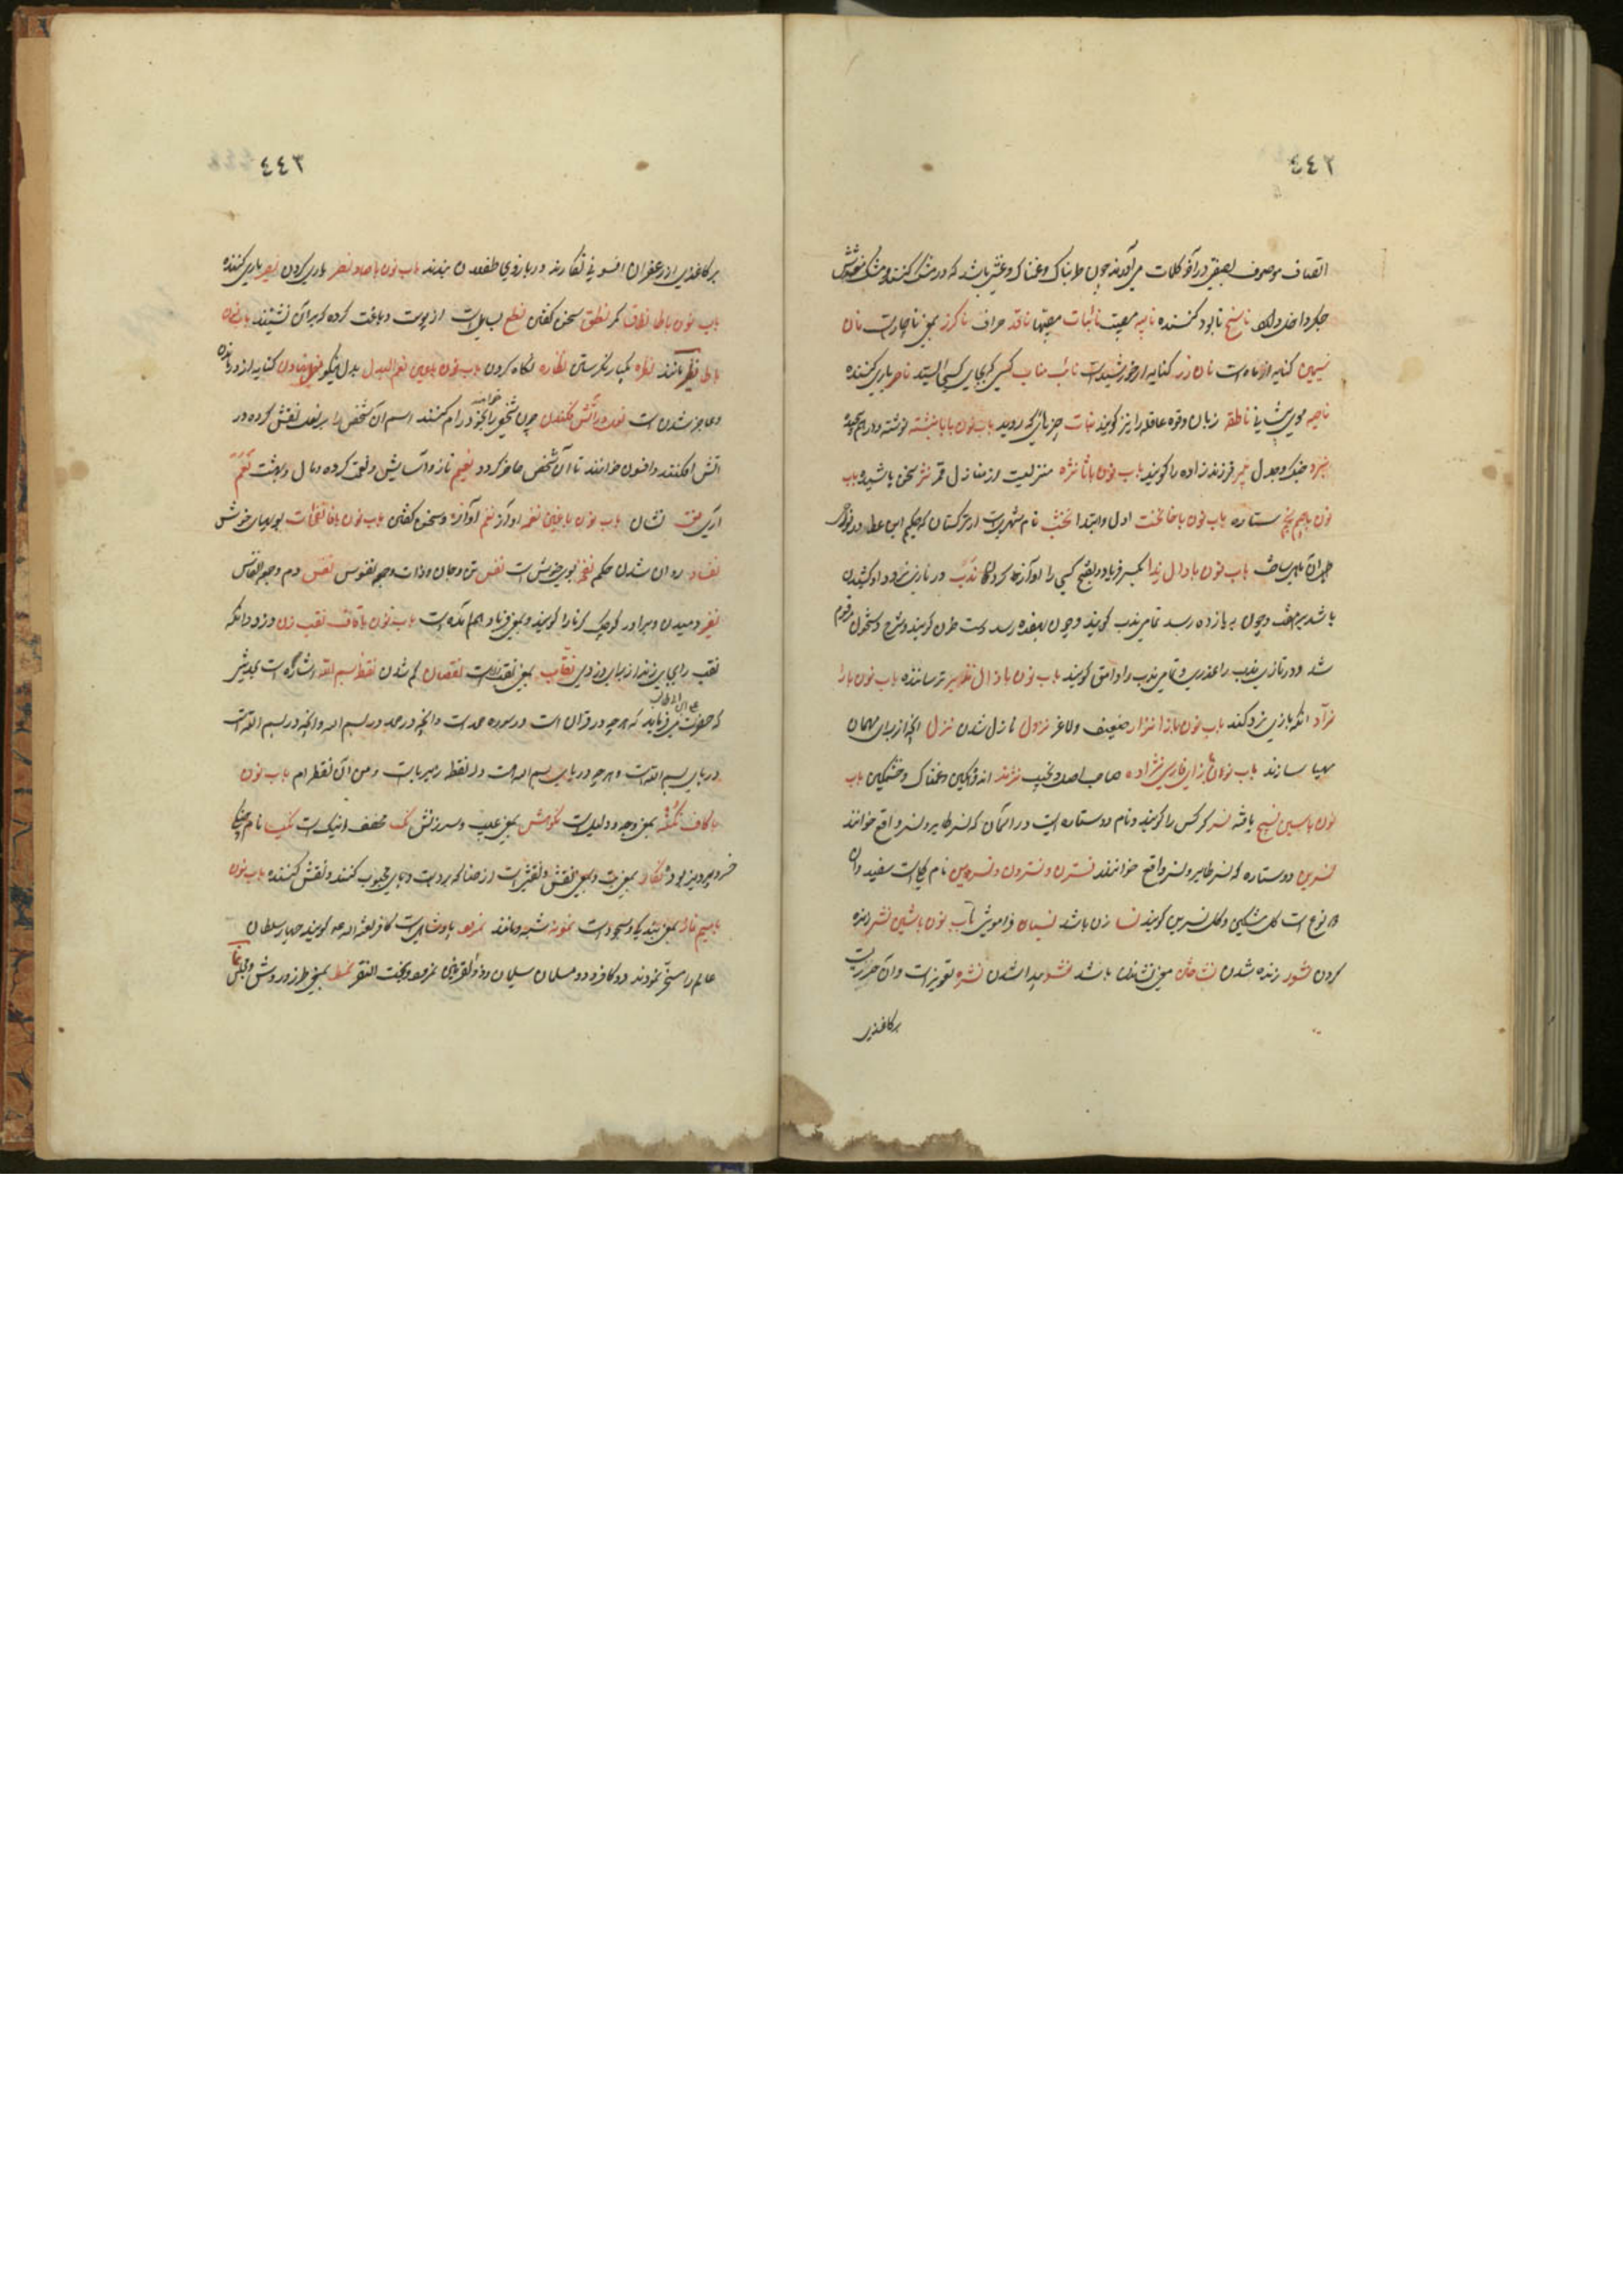 ٤٤٢
اتصاف موصوف بصفتی در آخر کلمات می آورند چون طربناک و غمناک و غیره باشد که در مشک کنند و مشک مغشوش
جگر داخل ناسخ نابود کننده نایبه مصیبت نائبات مصیبتها ناقد صراف ناگزر بمعنی ناچارست نان
سیمین کنایه از ماه است نان زر کنایه از خورشیدست نائب مناب کسی که بجای کسی ایستد ناصر یاری کننده
ناصیه موی پیشانی ناطقه زبان و قوه عاقله را نیز گویند نبات چیزهائی که روید باب نون با با نبشته نوشته و درهم پیچیده
نبرد جنگ و جدل نبیر فرزندزاده را گویند باب نون با ثا نثره منزلیست از منازل قمر نثر سخن پاشیده باب
نون با جیم نجم ستاره باب نون با خا نخست اول و ابتدا نخشب نام شهریست از ترکستان که حکیم ابن عطا در نواحی
باب نون با دال ندا بکسر فریاد و بفتح کسی را آواز کردن ندب در بازی نرد داو کشیدن
باشد بر هفت و چون به یازده رسد تمامی ندب گویند و چون بهفده رسد دست خون گویند و شرح دستخون مرقوم
شد و در تازی ندب را عذری و تمامی ندب را وامق گویند باب نون با ذال نذیر ترساننده باب نون با را
نراد آنکه بازی نرد کند باب نون با زا نزار ضعیف و لاغر نزول نازل شدن نزل آنچه از برای مهمان
مهیا سازند باب نون با زای فارسی نژاده صاحب اصل و نجیب نژند اندوهگین و غمناک و خشمگین باب
نون با سین نسیج بافته نسر کرکس را گویند و نام دو ستاره ایست در آسمان که نسر طایر و نسر واقع خوانند
نسرین دو ستاره که نسر طایر و نسر واقع خوانند نسترن و نسترون و نسرین نام گلیست سفید و آن
دو نوع است گل مشکین و گل نسرین گویند نسا زن باشد نسیان فراموشی باب نون با شین نشر زنده
کردن نشور زنده شدن نشاختن بمعنی نشاندن باشد نشو پیدا شدن نشره تعویذست و آن چیزیست
بر کاغذی
٤٤٣
بر کاغذی از زعفران افسونی نگارند و بر بازوی طفلان بندند باب نون با صاد نصر یاری کردن نصیر یاری کننده
باب نون با طا نطاق کمر نطق سخن گفتن نطع بساطیست از پوست دباغت کرده که بر آن نشینند باب نون
با ظا نظیر مانند نظره یکبار نگریستن نظاره نگاه کردن باب نون با عین نعم البدل بدل نیکو نعل نهادن کنایه از درمانده
و عاجز شدن است نعل در آتش افکندن چون خواهند شخصی را بخود رام کنند اسم آن شخص را بر نعل نقش کرده در
آتش افکنند و افسون خوانند تا آن شخص حاضر گردد نعیم ناز و آسایش و نعمت کرده و مال و بهشت نعم
آری نشان باب نون با غین نغمه آواز نغم آوازه و سخن گفتن باب نون با فا نفحات بویهای خوش
نفاد روان شدن حکم نفحه بوی خوش است نفس تن و جان و ذات و جمع نفوس نفس دم و جمع انفاس
نفیر دمیدن و برادر کوچک کرنا را گویند و بمعنی فریاد هم آمده است باب نون با قاف نقب زن دزد و آنکه
نقب را بجایی زند از برای دزدی نقاب بمعنی نقبزنست نقصان کم شدن نقطه بسم الله اشاره است بحدیثی
که حضرت علی ابن ابی طالب میفرماید که هرچه در قرآن است در سوره حمد است و آنچه در حمد در بسم الله و آنچه در بسم الله است
در بای بسم الله است و هرچه در بای بسم الله است در نقطه زیر باست و من آن نقطه ام باب نون
با کاف نکته بمعنی وجه و دلیلست نکوهش بمعنی عیب و سرزنش نک مخفف اینک است نکیسا نام چنگی
خسرو پرویز بود نگار بمعنی بت و بمعنی نقش و نقشی است از حنا که بر دست و پای محبوب کنند و نقش کننده باب نون
با میم نماز بمعنی بندگی و سجود است نمونه شبه و مانند نمرود پادشاهیست کافر لعنة الله علیه گویند چهار سلطان
عالم را مسخر نمودند دو کافر و دو مسلمان سلیمان و ذوالقرنین نمرود و بخت النصر نمط بمعنی طرز و روش